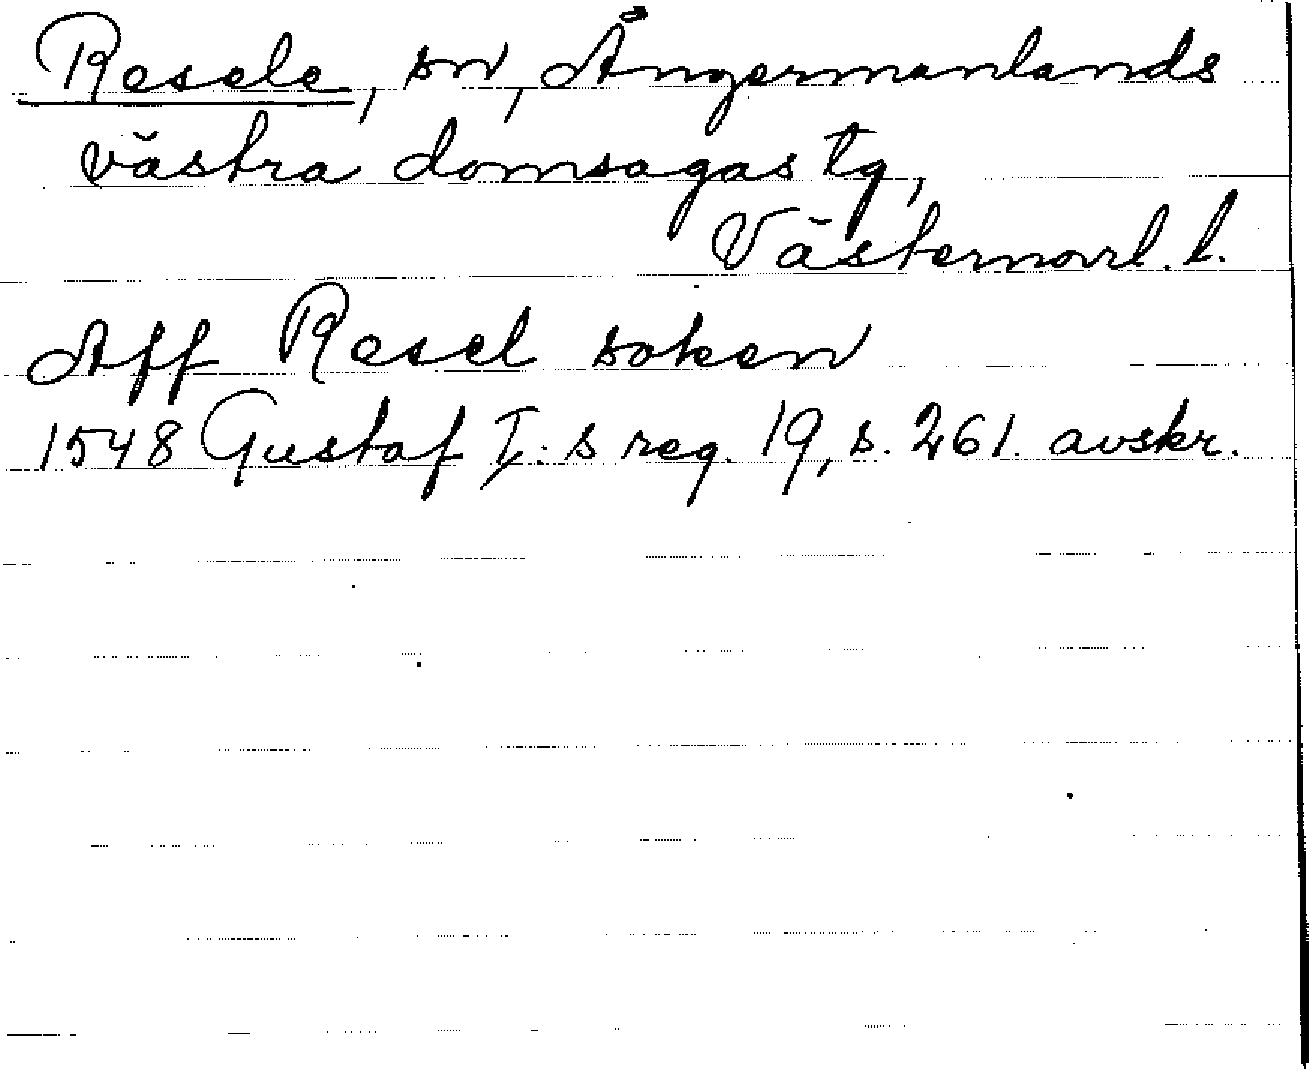 Resele, sn, Ångermanlands
västra domsagas tg,
Västernorrl. l.
Aff Resel soken
1548 Gustaf I:s reg. 19, s. 261. avskr.